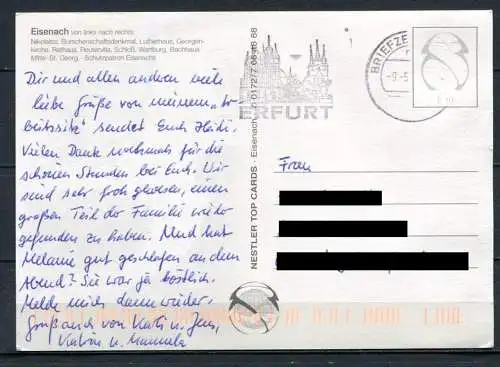 Eisenach von links nach rechts:
Nikolaitor, Burschenschaftsdenkmal, Lutherhaus, Georgen-
kirche, Rathaus, Reuterville, Schloß, Wartburg, Bachhaus
Mitte-St. Georg - Schutzpatron Eisenachs
Dir und allen andren viele
liebe Grüße von meinem
sendet Euch Heidi.
Vielen Dank nochmals für die
schönen Stunden bei Euch. Wir
sind sehr froh gewesen, einen
großen Teil der Familie wieder
gefunden zu haben. Und hat
Melanie gut geschlafen an dem
Abend? Sie war ja köstlich.
Melde mich dann wieder.
Grüß auch von Kati u. Jens,
Katrin u. Manuela
NESTLER TOP CARDS - Eisenach
ERFURT
BRIEFZE
Frau